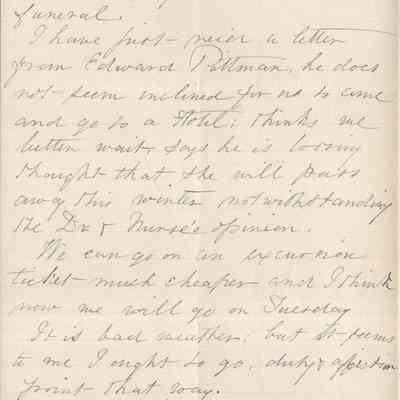 funeral.
I have just rec'd a letter
from Edward Pittman, he does
not seem inclined for us to come
and go to a Hotel; thinks we
better wait, says he is
thought that she will pass
away this winter notwithstanding
the Dr & Nurse's opinion.
We can go on an excursion
ticket much cheaper and I think
now we will go on Tuesday
It is bad weather; but it seems
to me I ought to go, duty & affection
point that way.